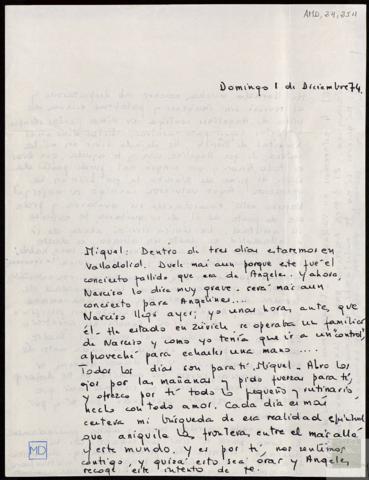 AMD, 24, 25
Domingo 1 de Diciembre 74.
Miguel: Dentro de tres días estaremos en
Valladolid. Duele mas aun porque este fué el
concierto fallido que era de Angeles. Y ahora,
Narciso lo dice muy grave. será mas aun
concierto para Angelines....
Narciso llegó ayer; yo unas horas, antes, que
él. He estado en Zürich, se operaba un familiar
de Narciso y como yo tenía que ir a un "control,
aproveché para echarles una mano ....
Todos los días son para ti, Miguel. Abro los
ojos por las mañanas y pido fuerzas para ti,
y ofrezco por ti todo lo pequeño y rutinario,
hecho con todo amor. Cada día es mas
certera mi búsqueda de esa realidad espiritual
que aniquila las fronteras, entre el mas allá
y este mundo. Y es por ti, nos sentimos
contigo, y quizá esto sea orar y Angeles,
recoge este intento de fe.
MD